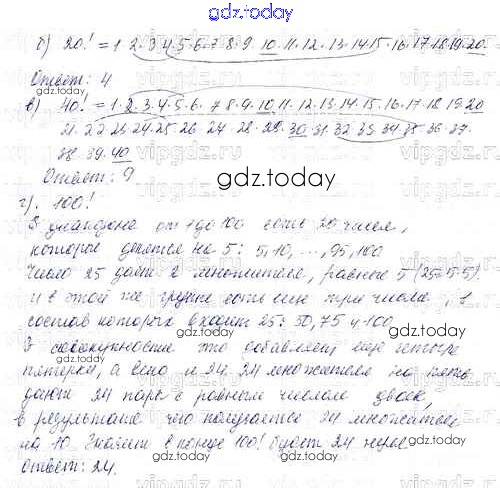 gdz.today
б) 20! = 1·2·3·4·5·6·7·8·9·10·11·12·13·14·15·16·17·18·19·20.
Ответ: 4
в) 40! = 1·2·3·4·5·6·7·8·9·10·11·12·13·14·15·16·17·18·19·20
21·22·23·24·25·26·27·28·29·30·31·32·33·34·35·36·37·
38·39·40
Ответ: 9
gdz.today
г). 100!
от 1 до 100 есть 20 чисел,
которое делятся на 5: 5, 10, ..., 95, 100
gdz.today
Число 25 даёт 2 множителя, равные 5 (25=5·5).
и в этой же группе есть еще три числа, в
состав которых входит 25: 50, 75 и 100
В совокупности это добавляет еще четыре
gdz.today
пятерки, а всего и 24. 24 множителя на пять
дают 24 пары с равным числом двоек,
в результате чего получается 24 множителей
на 10. Значит в конце 100! будет 24 нуля
gdz.today
Ответ: 24.
gdz.today